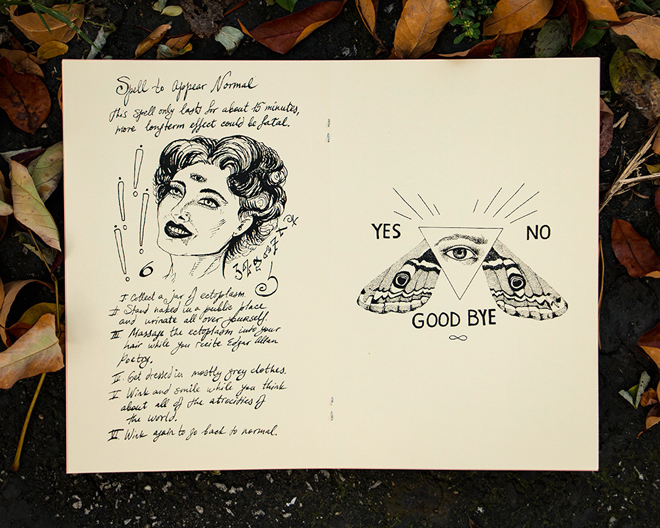 Spell to Appear Normal
This Spell only lasts for about 15 minutes,
more longterm effect could be fatal.
6
I Collect a Jar of ectoplasm
II Stand naked in a public place
and urinate all over yourself.
III Massage the ectoplasm into your
hair while you recite Edgar Allan
Poetry.
IV Get dressed in mostly grey clothes.
V Wink and smile while you think
about all of the atrocities of
the world.
VI Wink again to go back to normal.
YES NO
GOOD BYE
∞